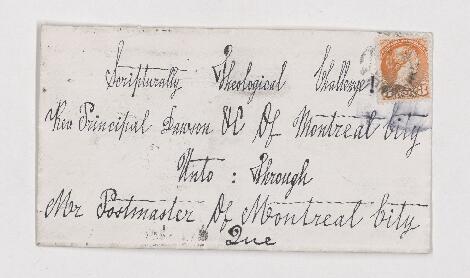 Scripturally Theological Challenge!
Rev Principal Dawson &C Of Montreal City
Unto : Through
Mr Postmaster Of Montreal City
Que